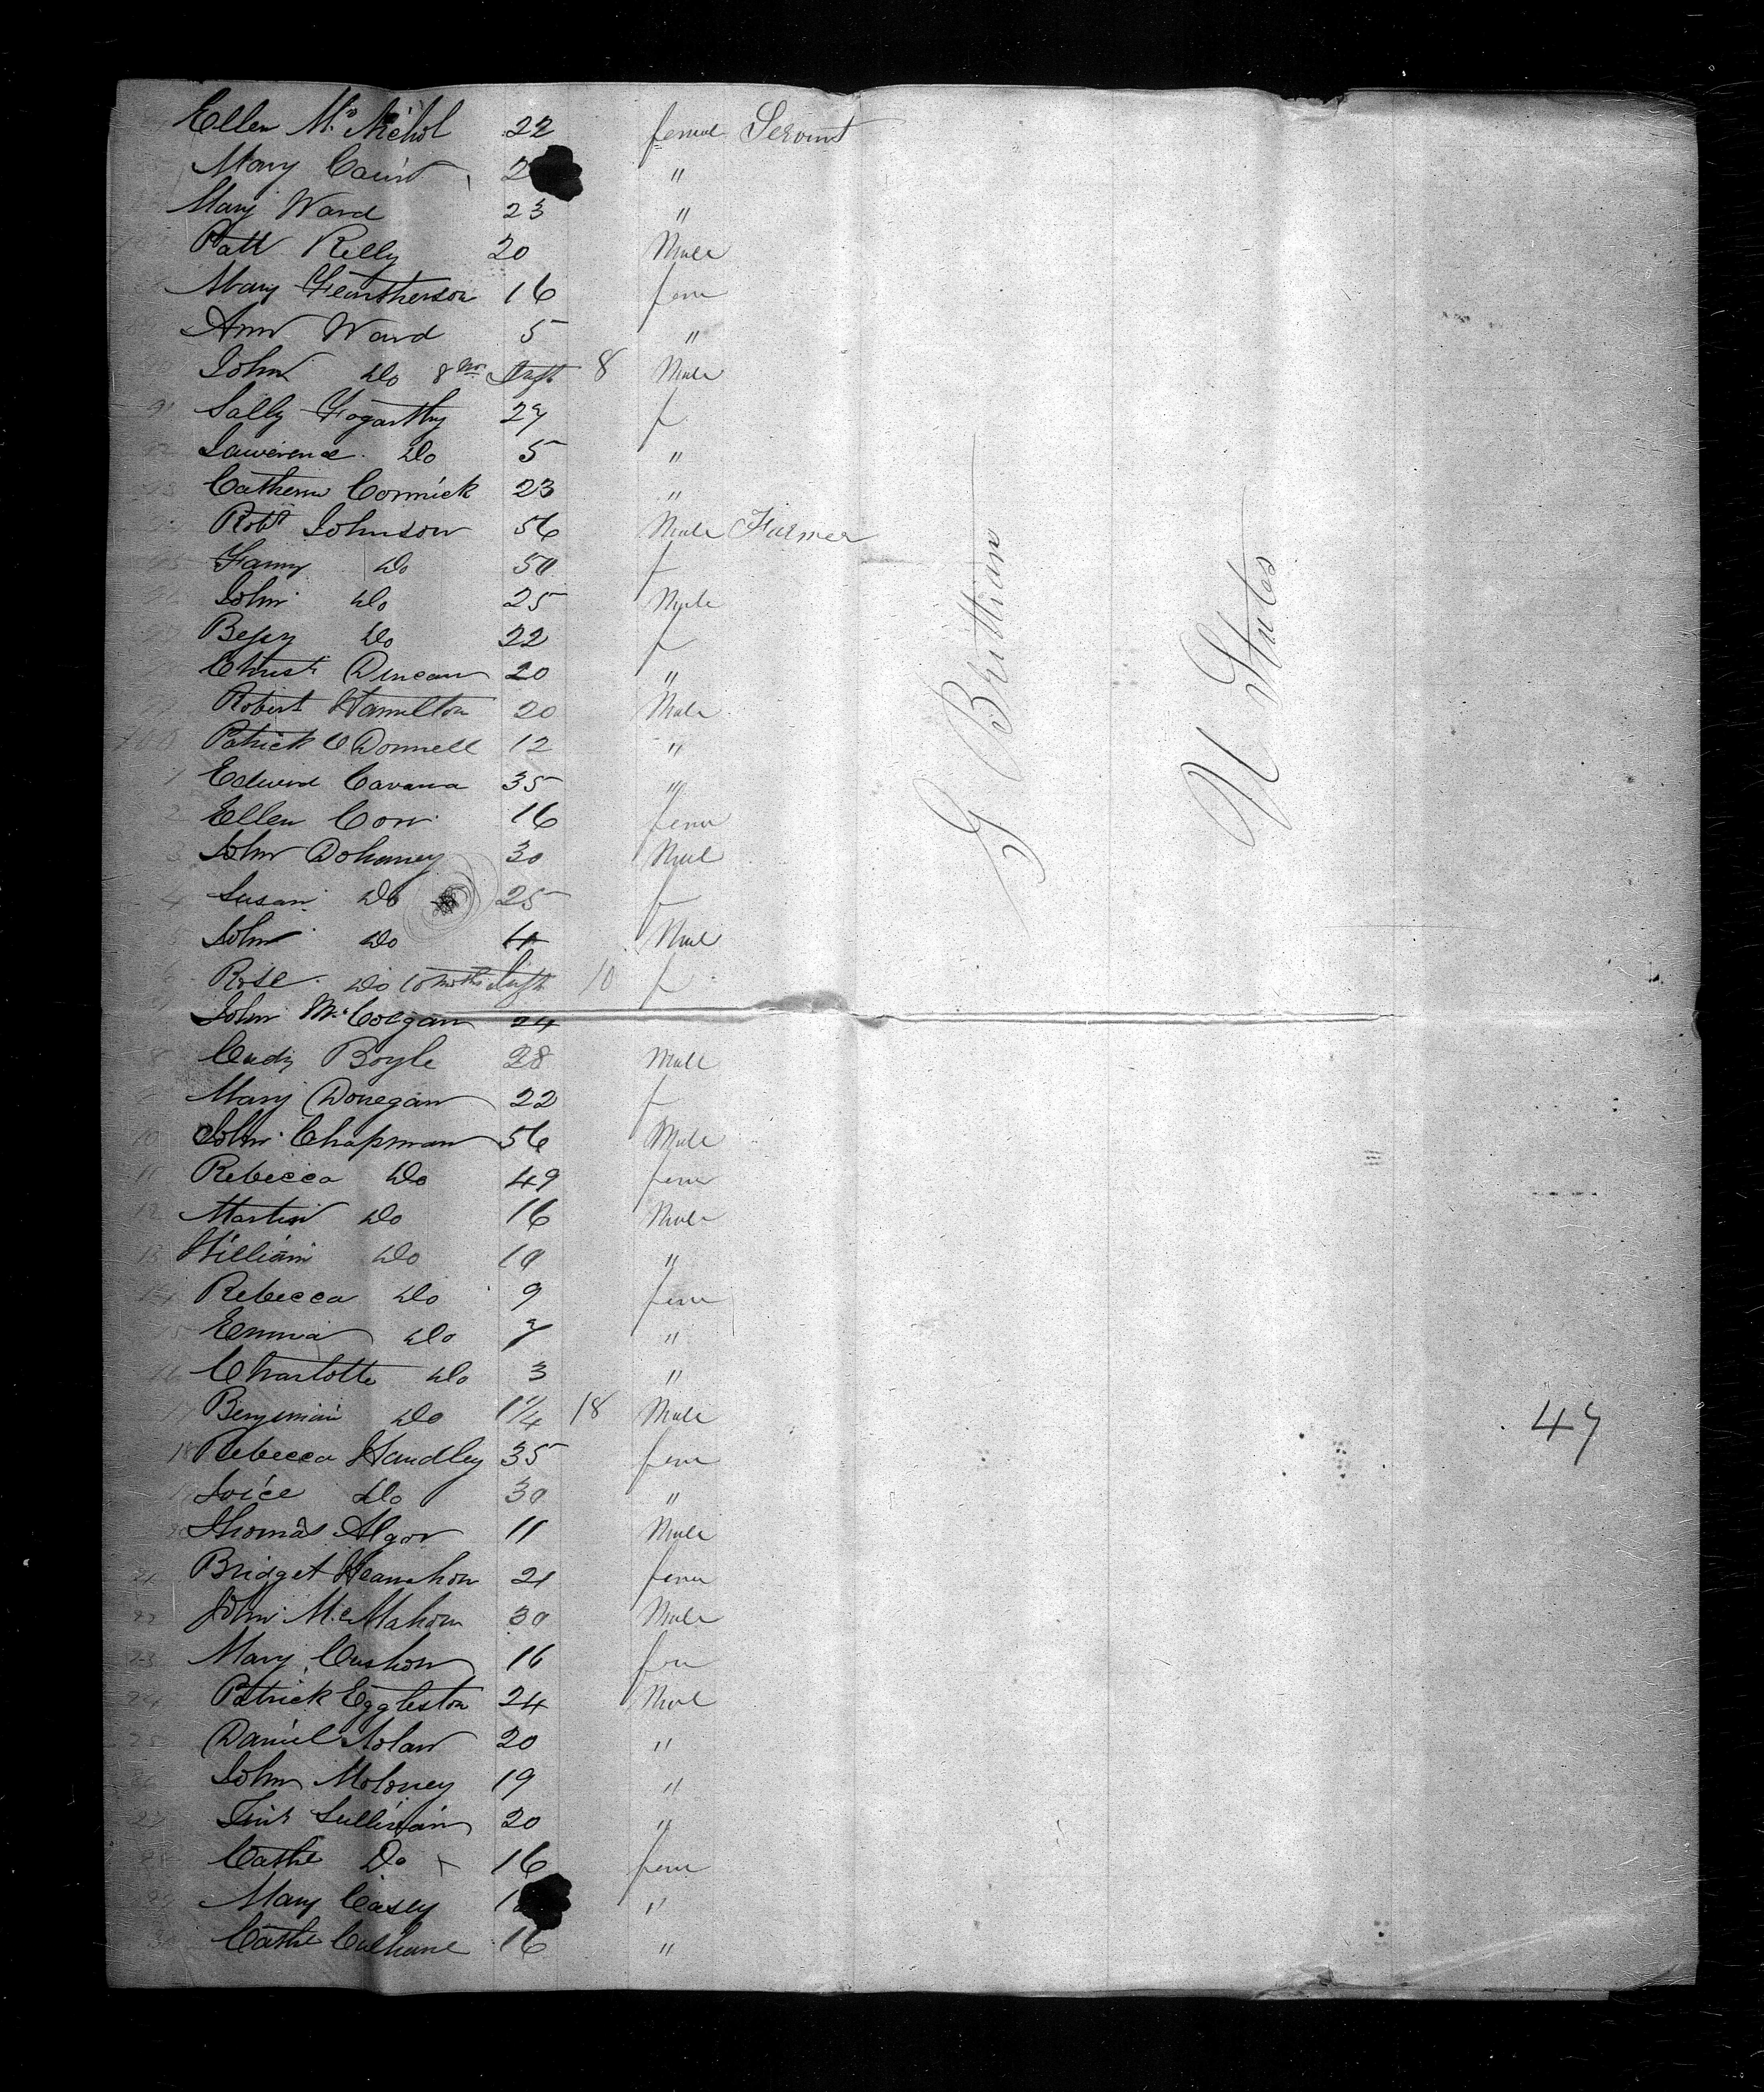 Ellen McNichol 22 femal Servant
Mary 2 "
Mary Ward 23 "
Patt Kelly 20 Male
Mary Feintherson 16 fem
Ann Ward 5 "
John Do 8 mo Inft 8 Male
91 Sally Fogarthy 27 f
92 Lawerence Do 5 "
93 Catherin Cormick 23 "
Robt Johnson 56 Male Farmer
95 Fanny Do 50 f
96 John Do 25 Male
97 Bessy Do 22 f
98 Christ Duncan 20 "
99 Robert Hamilton 20 Male
100 Patrick O Donnell 12 "
1 Edwird Cavana 35 "
2 Ellen Corr 16 fem
3 John Dohaney 30 Mal
4 Susan Do 25 f
5 John Do 4 Mal
6 Rose Do 10 months Inft 10 f
John McColgan 24
8 Cudy Boyle 28 Male
9 Mary Donegan 22 f
10 John Chapman 56 Male
11 Rebecca Do 49 fem
12 Martin Do 16 Male
13 William Do 10 "
14 Rebecca Do 9 fem
15 Emma Do 7 "
16 Charlotte Do 3 "
17 Benjemin Do 1 1/4 18 Male
18 Rebecca Handley 35 fem
19 Joice Do 30 "
20 Thomas Algor 11 Male
21 Bridget Heanahon 21 fem
22 John McMahon 30 Male
23 Mary Cushon 16 fem
24 Patrick Eggleston 24 Male
25 Daniel Nolan 20 "
26 John Moloney 19 "
27 Tim Sullivan 20 "
28 Cathe Do 16 fem
29 Mary Casey 1 "
30 Cathe Culhane 16 "
G Brittian
U States
47